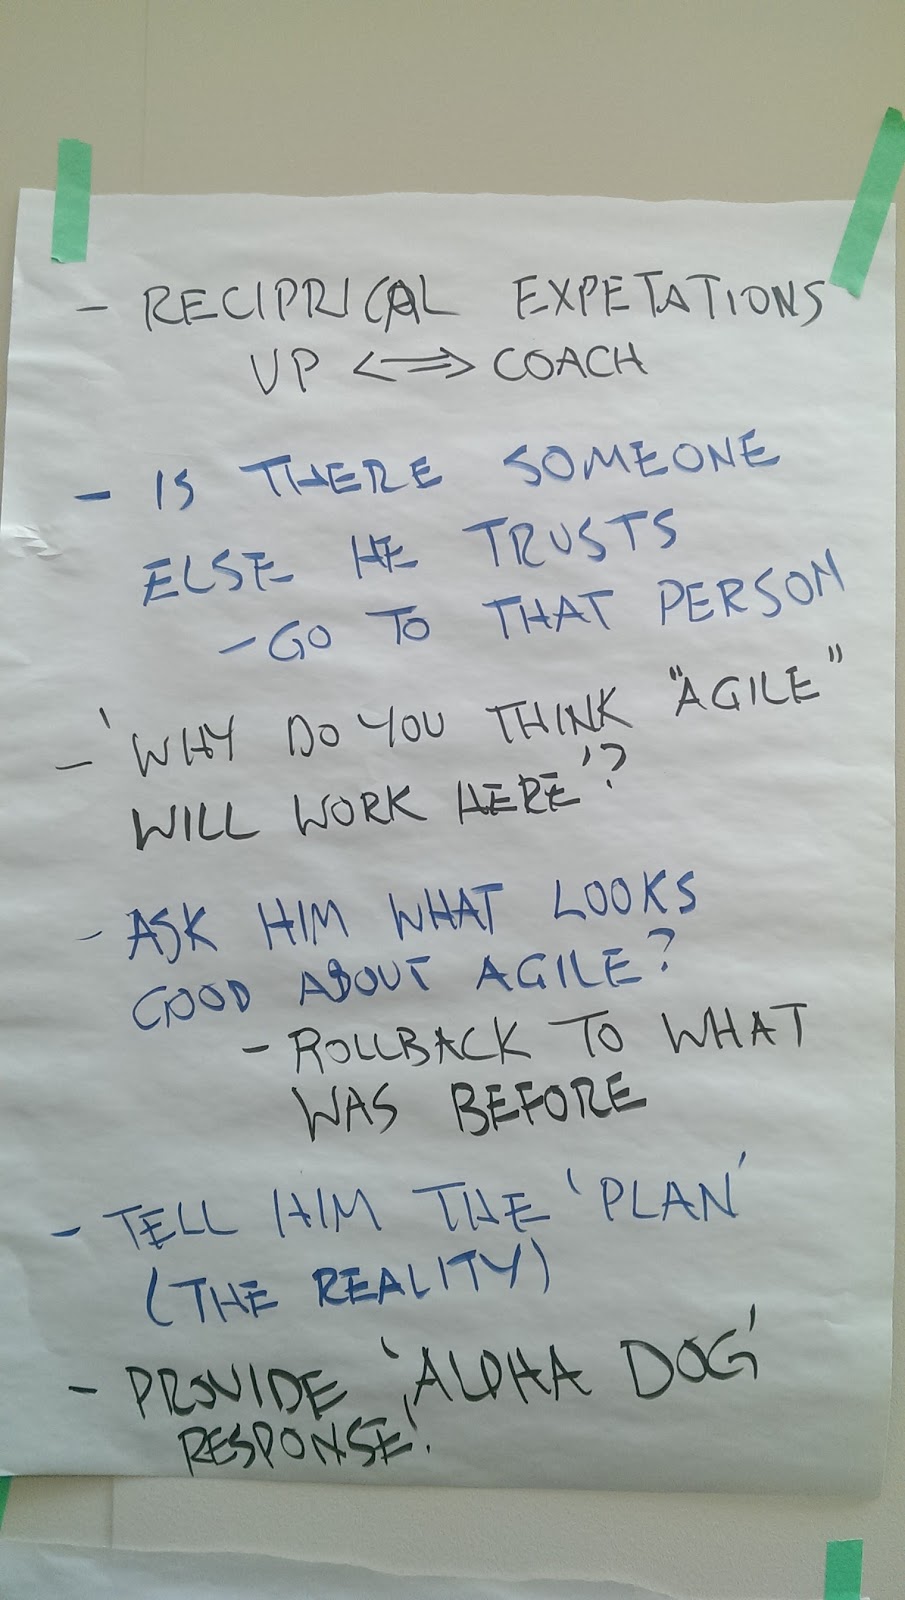 - RECIPRICAL EXPETATIONS
VP <=> COACH
- IS THERE SOMEONE
ELSE HE TRUSTS
- GO TO THAT PERSON
- 'WHY DO YOU THINK "AGILE"
WILL WORK HERE'?
- ASK HIM WHAT LOOKS
GOOD ABOUT AGILE?
- ROLLBACK TO WHAT
WAS BEFORE
- TELL HIM THE 'PLAN'
(THE REALITY)
- PROVIDE 'ALPHA DOG'
RESPONSE!